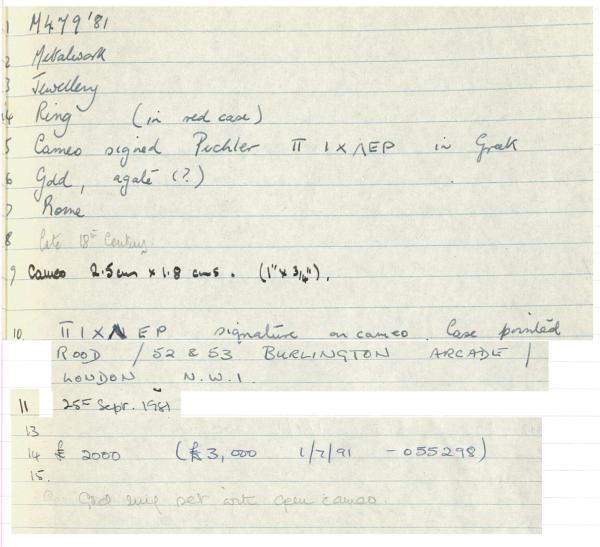 1 M479'81
2 Metalwork
3 Jewellery
4 Ring (in red case)
5 Cameo signed Pichler Π I X Λ E P in Greek
6 Gold, agate (?)
7 Rome
8 late 18th Century.
9 Cameo 2.5cm x 1.8 cms. (1" x 3/4").
10. Π I X Λ E P signature on cameo. Case printed
ROOD / 52 & 53 BURLINGTON ARCADE /
LONDON N.W.1.
11 25th Sepr. 1981
13
14 £ 2000 (£3,000 1/7/91 - 055298)
15.
Gold ring set with gem cameo.